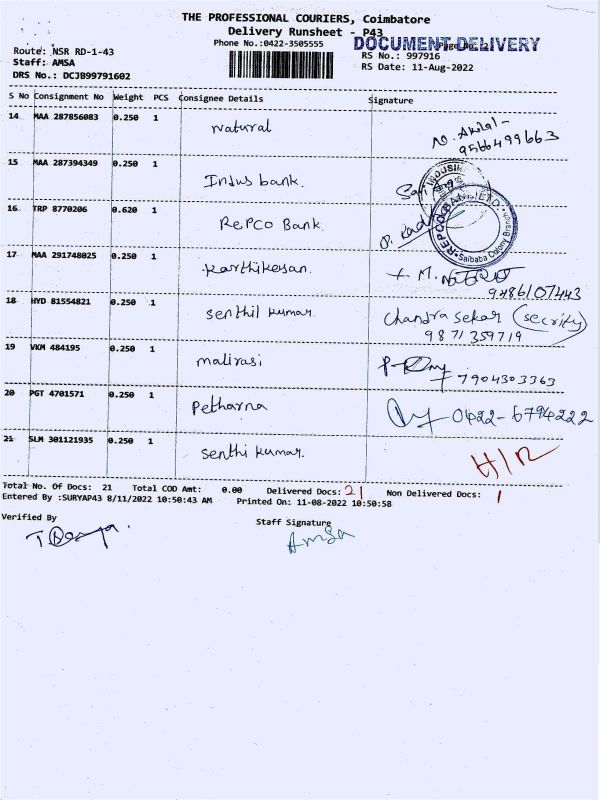 THE PROFESSIONAL COURIERS, Coimbatore
Delivery Runsheet - P43
Phone No.:0422-3505555
DOCUMENT DELIVERY
Route: NSR RD-1-43
Staff: AMSA
DRS No.: DCJB99791602
RS No.: 997916
RS Date: 11-Aug-2022
S No Consignment No Weight PCS Consignee Details Signature
14 MAA 287856083 0.250 1 Natural
9566499663
15 MAA 287394349 0.250 1 Indus bank.
16 TRP 8770206 0.620 1 RePCO Bank.
REPCO BANK LTD. Saibaba Colony Branch
17 MAA 291748025 0.250 1 karthikesan.
9486107443
18 HYD 81554821 0.250 1 senthil kumar. Chandra sekar (secrity)
9871359719
19 VKM 484195 0.250 1 malirasi
7904303363
20 PGT 4701571 0.250 1 Petharna 0422-6794222
21 SLM 301121935 0.250 1 senthi kumar. H/R
Total No. Of Docs: 21 Total COD Amt: 0.00 Delivered Docs: 21 Non Delivered Docs: 1
Entered By :SURYAP43 8/11/2022 10:50:43 AM Printed On: 11-08-2022 10:50:58
Verified By Staff Signature
AmSa